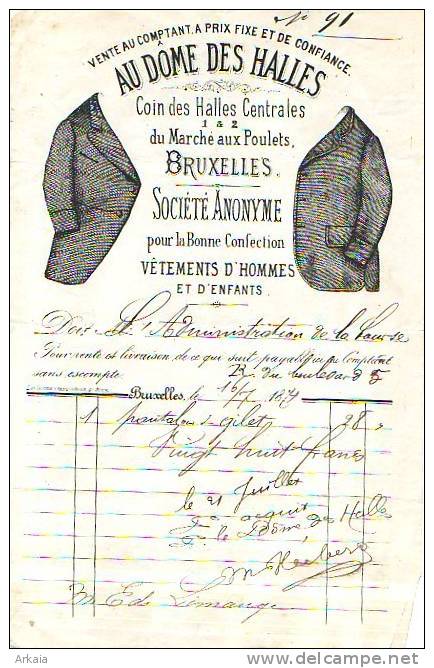 No 91
VENTE AU COMPTANT, A PRIX FIXE ET DE CONFIANCE.
AU DÔME DES HALLES
Coin des Halles Centrales
1 & 2
du Marché aux Poulets,
BRUXELLES.
SOCIÉTÉ ANONYME
pour la Bonne Confection
VÊTEMENTS D'HOMMES
ET D'ENFANTS.
Doit L'Administration de la
Pour vente et livraison de ce qui suit, payable au Comptant
sans escompte. du boulevard
Bruxelles, le 16/7 187
1 pantalon & gilet 28 "
Vingt huit francs
le 21 Juillet
Pr acquit
Pr le Dôme des Halles
M Eds Lemange
Arkaia
delcampe.net